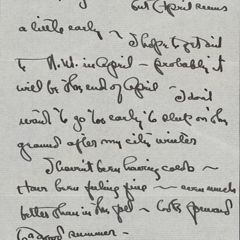 but April seems
a little early — I hope to get out
to N.M. in April — probably it
will be the end of April — I don't
want to go too early to sleep on the
ground after my city winter
I haven't been having colds —
Have been feeling fine — even much
better than in the fall — looks forward
to a good summer —